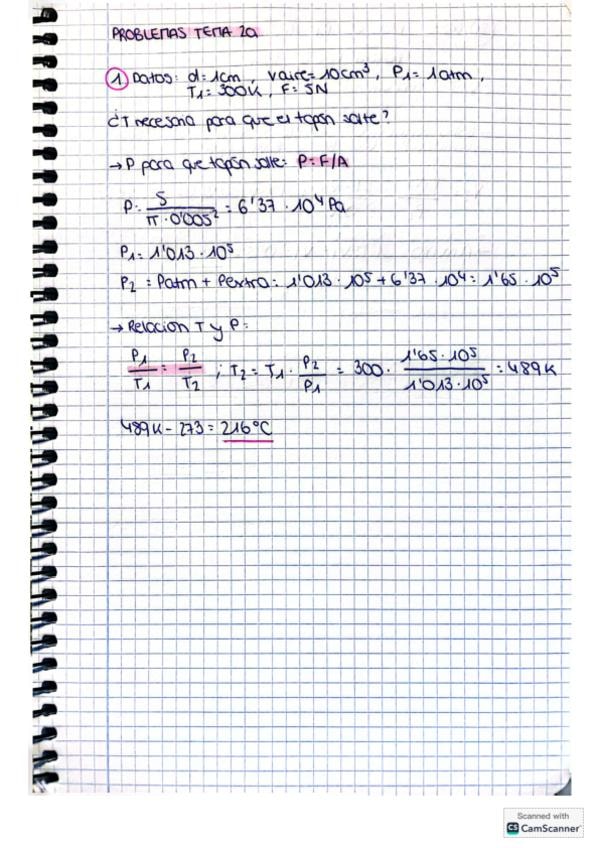 PROBLEMAS TEMA 2a
1 Datos: d=1cm, Vaire=10cm³, P₁=1atm,
T₁=300K, F=5N
¿T necesaria para que el tapón salte?
→ P para que tapón salte: P=F/A
P: 5 / π·0'005² = 6'37·10⁴Pa
P₁=1'013·10⁵
P₂ = Patm + Pextra: 1'013·10⁵+6'37·10⁴= 1'65·10⁵
→ Relación T y P:
P₁/T₁ = P₂/T₂ ; T₂ = T₁· P₂/P₁ = 300· 1'65·10⁵/1'013·10⁵ = 489K
489K-273 = 216°C
Scanned with
CS CamScanner